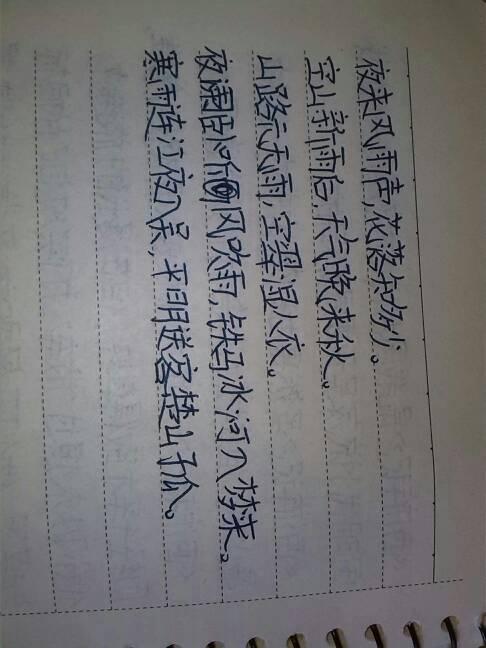 夜来风雨声,花落知多少。
空山新雨后,天气晚来秋。
山路元无雨,空翠湿人衣。
夜阑卧听风吹雨,铁马冰河入梦来。
寒雨连江夜入吴,平明送客楚山孤。